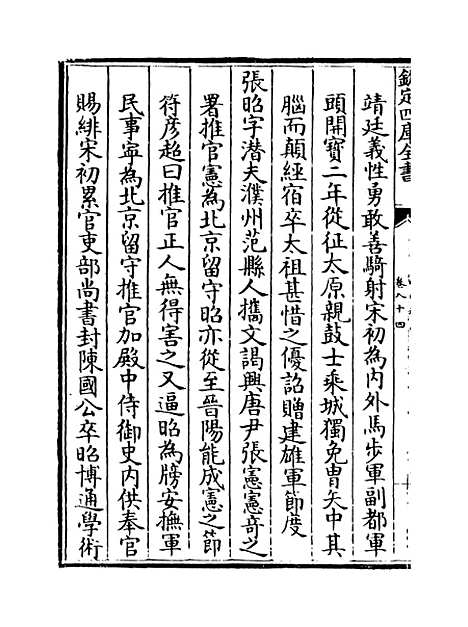 欽定四庫全書
卷八十四
靖廷義性勇敢善騎射宋初為內外馬步軍副都軍
頭開寶二年從征太原親鼓士乘城獨免胄矢中其
腦而顛經宿卒太祖甚惜之優詔贈建雄軍節度
張昭字潛夫濮州范縣人攜文謁興唐尹張憲憲奇之
署推官憲為北京留守昭亦從至晉陽能成憲之節
符彥超曰推官正人無得害之又逼昭為牓安撫軍
民事寧為北京留守推官加殿中侍御史內供奉官
賜緋宋初累官吏部尚書封陳國公卒昭博通學術